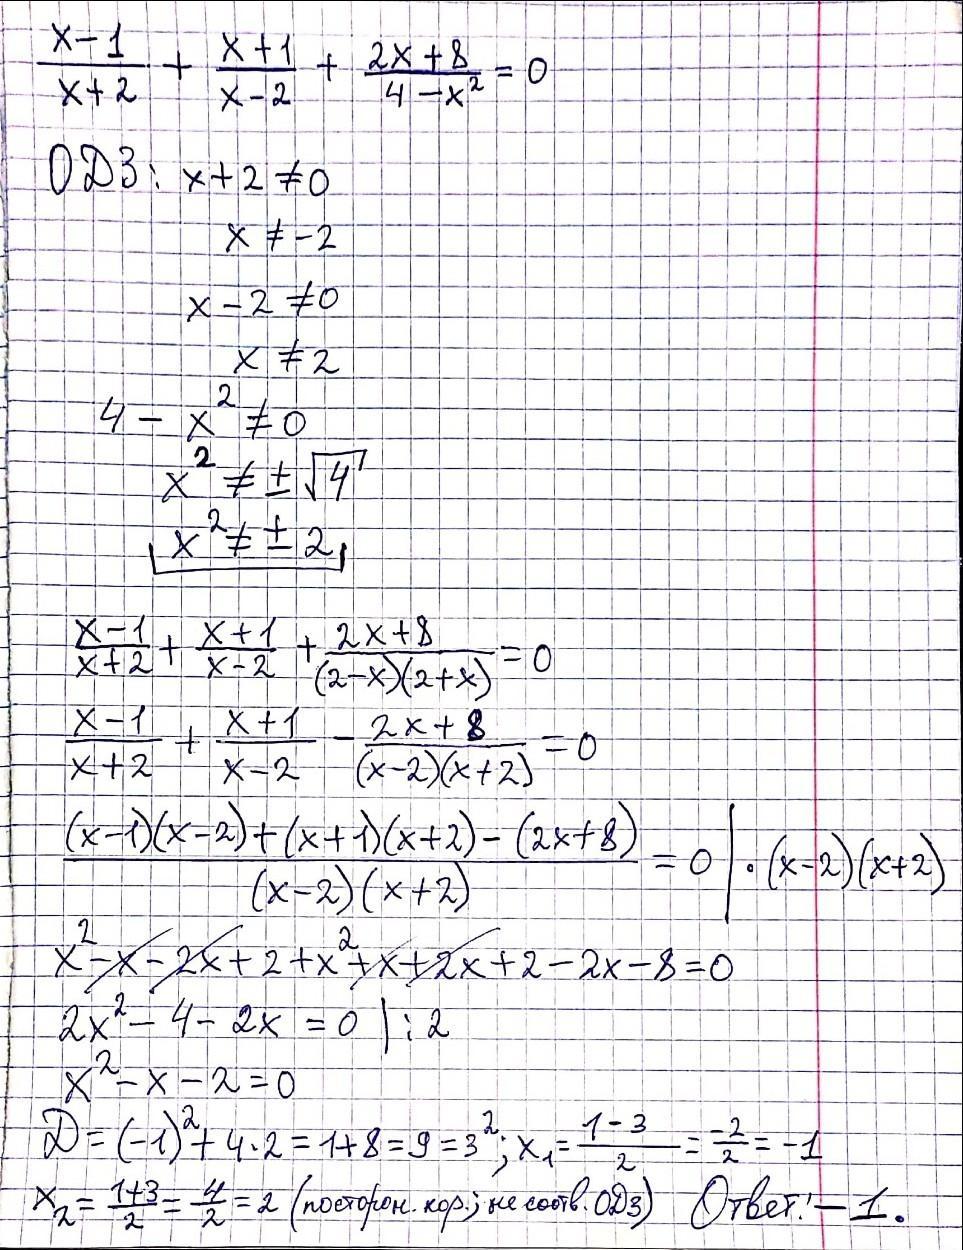 (x-1)/(x+2) + (x+1)/(x-2) + (2x+8)/(4-x²) = 0
ОДЗ: x+2 ≠ 0
x ≠ -2
x - 2 ≠ 0
x ≠ 2
4 - x² ≠ 0
x² ≠ ± √4
x² ≠ ± 2
(x-1)/(x+2) + (x+1)/(x-2) + (2x+8)/((2-x)(2+x)) = 0
(x-1)/(x+2) + (x+1)/(x-2) - (2x+8)/((x-2)(x+2)) = 0
((x-1)(x-2)+(x+1)(x+2)-(2x+8))/((x-2)(x+2)) = 0 | · (x-2)(x+2)
x² - x - 2x + 2 + x² + x + 2x + 2 - 2x - 8 = 0
2x² - 4 - 2x = 0 | : 2
x² - x - 2 = 0
Д = (-1)² + 4·2 = 1+8 = 9 = 3²; x₁ = (1-3)/2 = -2/2 = -1
x₂ = (1+3)/2 = 4/2 = 2 (посторон. кор.; не соотв. ОДЗ) Ответ: -1.